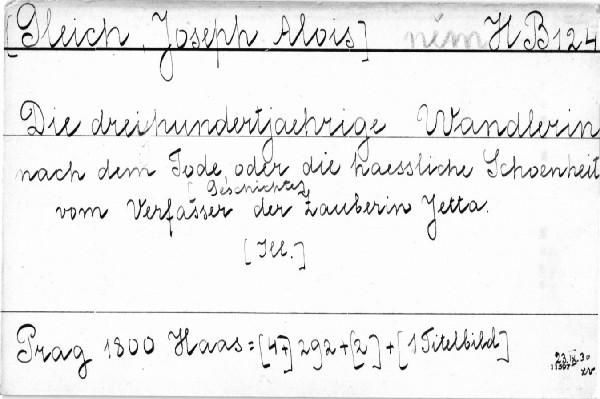 [Gleich, Joseph Alois] něm H B 124
Die dreihundertjaehrige Wandlerin
nach dem Tode oder die haessliche Schoenheit
[Geschichte]
vom Verfasser der Zauberin Jetta.
[Ill.]
Prag 1800 Haas = [4+] 292 + [2] + [1 Titelbild]
23.IX.30
11397